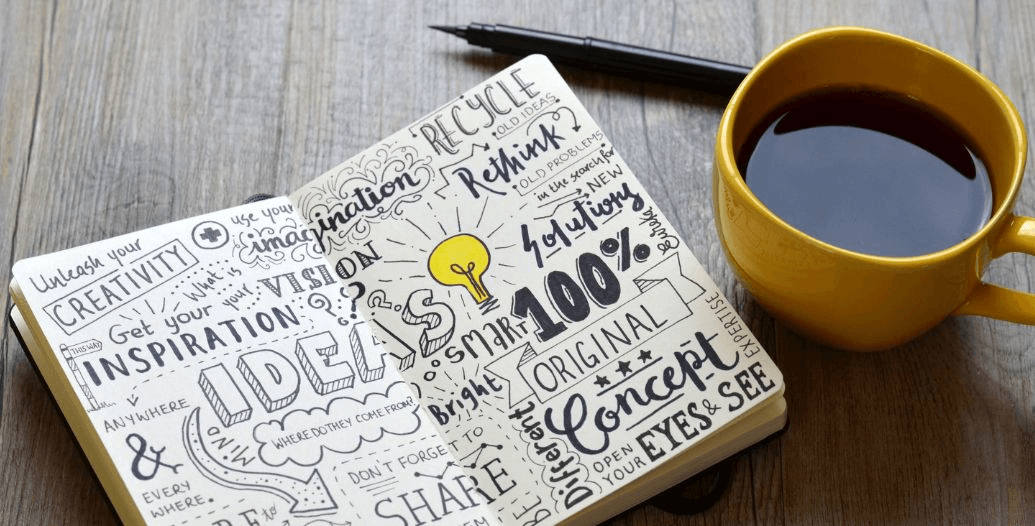 Unleash your
CREATIVITY
use your
imagination
What is
your
VISION
?
THIS WAY
Get your
INSPIRATION
ANYWHERE
&
EVERY
WHERE.
IDEAS
MIND
WHERE DO THEY COME FROM?
DON'T FORGET TO
SHARE
RECYCLE
OLD IDEAS
Rethink
OLD PROBLEMS
in the search for
NEW
Solutions
SMART
100%
Bright
ORIGINAL
EXPERTISE
Concept
Different
OPEN
YOUR
EYES & SEE
BE